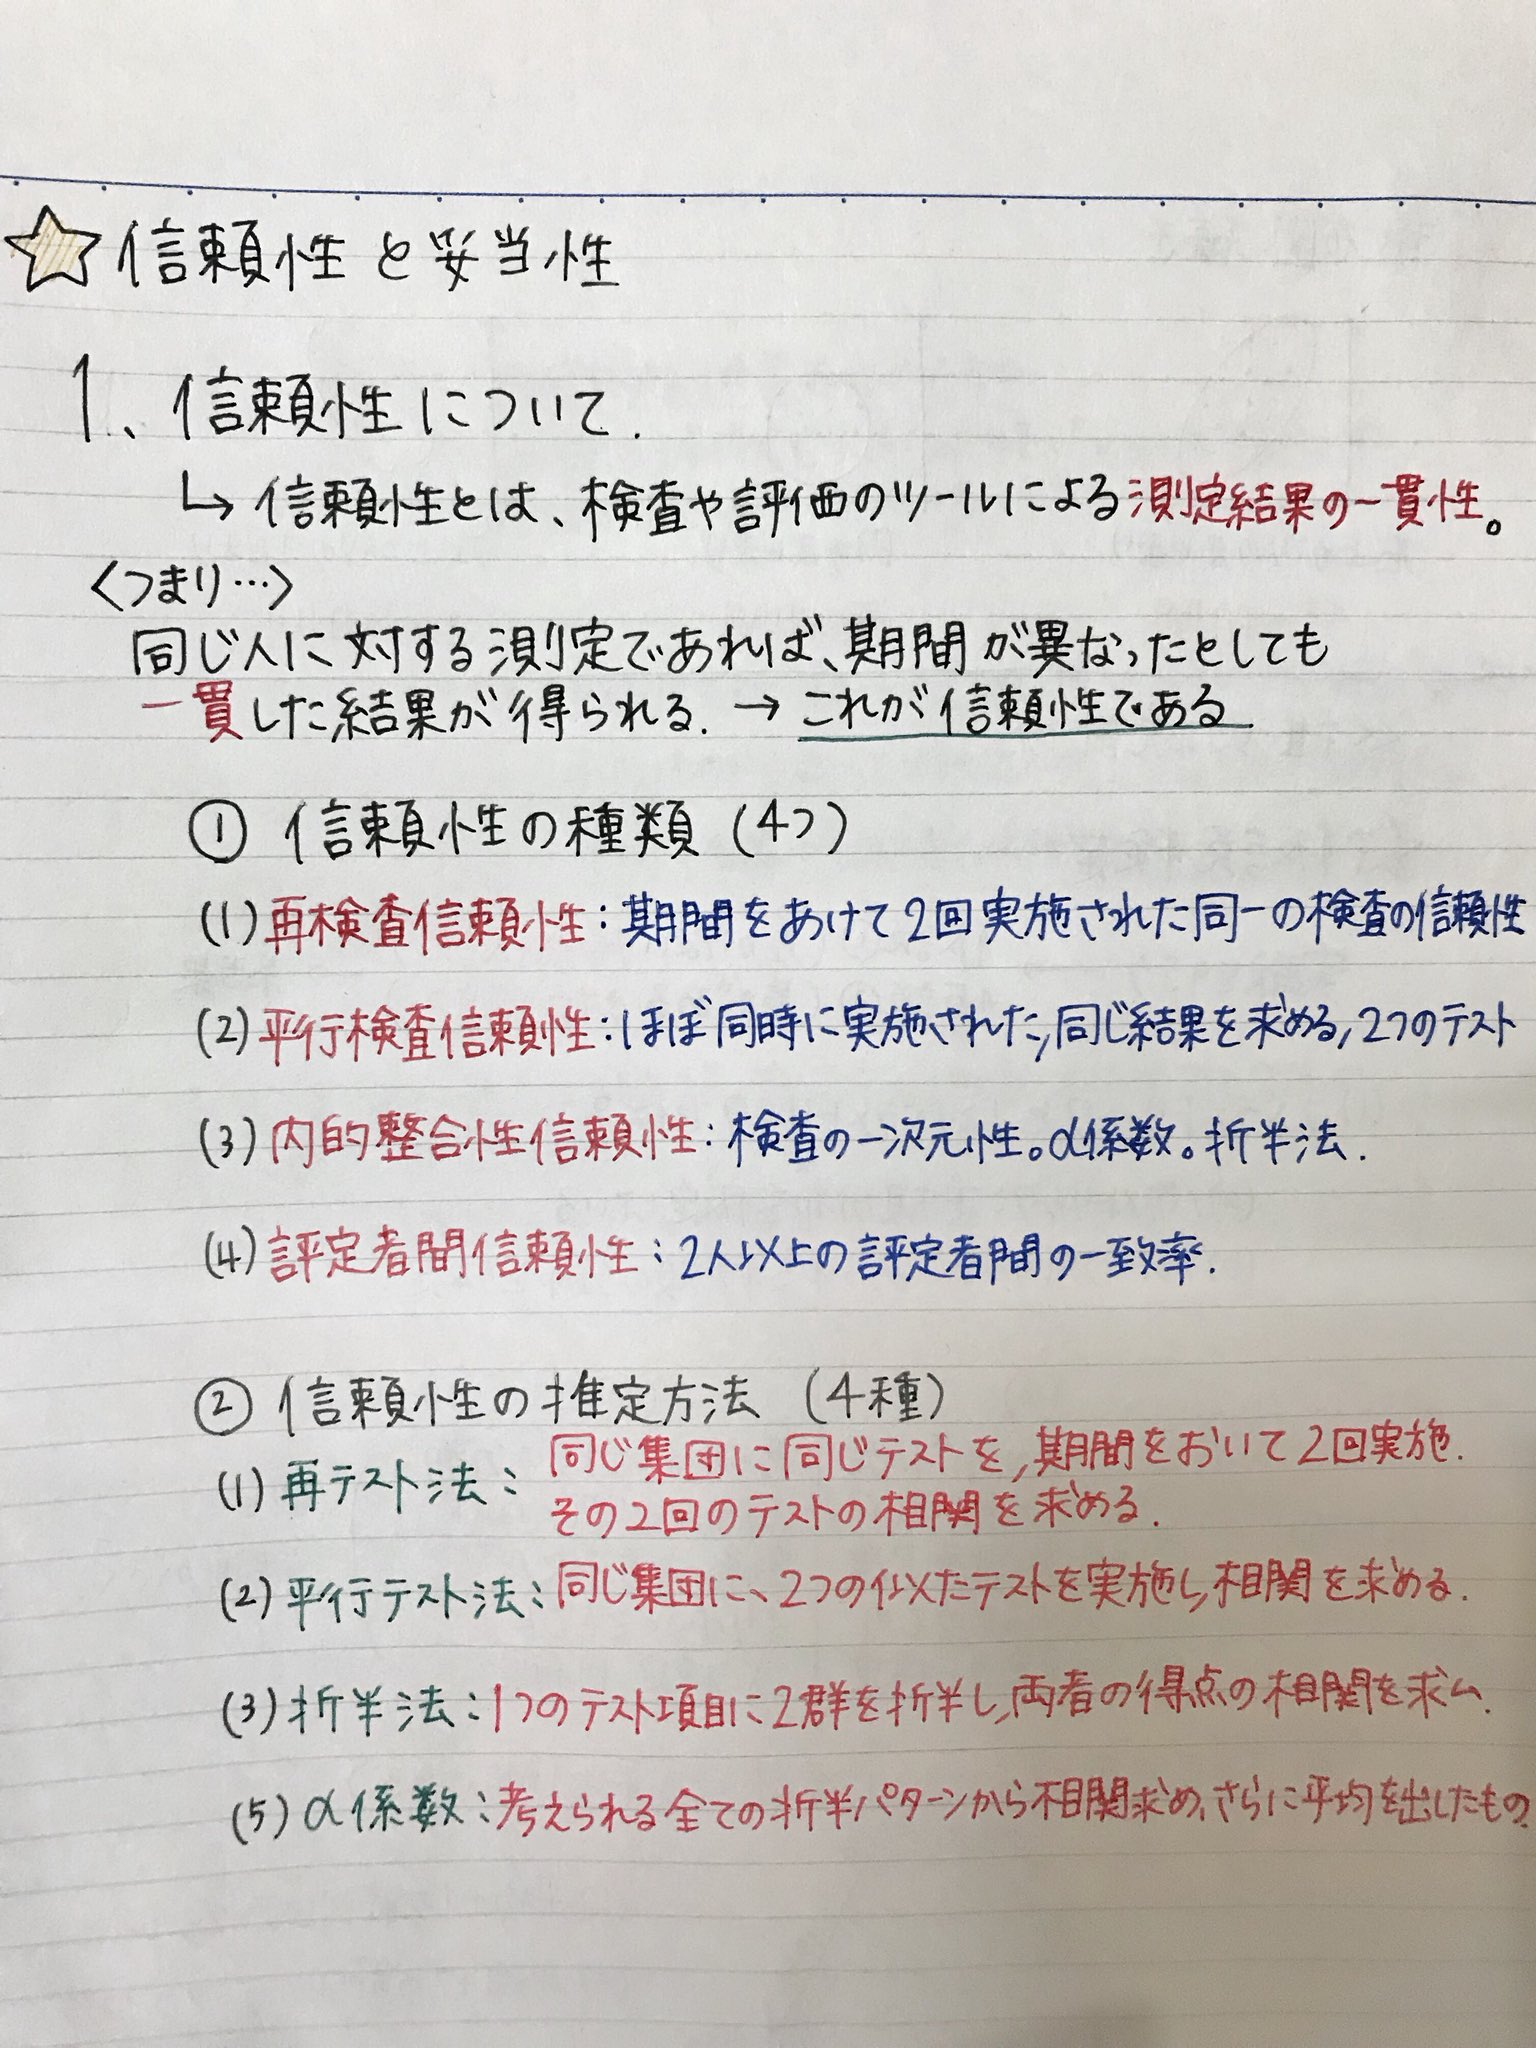 ☆信頼性と妥当性
1、信頼性について.
↳ 信頼性とは、検査や評価のツールによる測定結果の一貫性。
〈つまり…〉
同じ人に対する測定であれば、期間が異なったとしても
一貫した結果が得られる. → これが信頼性である
① 信頼性の種類 (4つ)
(1) 再検査信頼性：期間をあけて2回実施された同一の検査の信頼性
(2) 平行検査信頼性：ほぼ同時に実施された,同じ結果を求める,2つのテスト
(3) 内的整合性信頼性：検査の一次元性。α係数。折半法.
(4) 評定者間信頼性：2人以上の評定者間の一致率.
② 信頼性の推定方法 (4種)
(1) 再テスト法：同じ集団に同じテストを,期間をおいて2回実施.
その2回のテストの相関を求める.
(2) 平行テスト法：同じ集団に、2つの似たテストを実施し,相関を求める.
(3) 折半法：1つのテスト項目に2群を折半し,両者の得点の相関を求ム.
(5) α係数：考えられる全ての折半パターンから相関求め、さらに平均を出したもの.